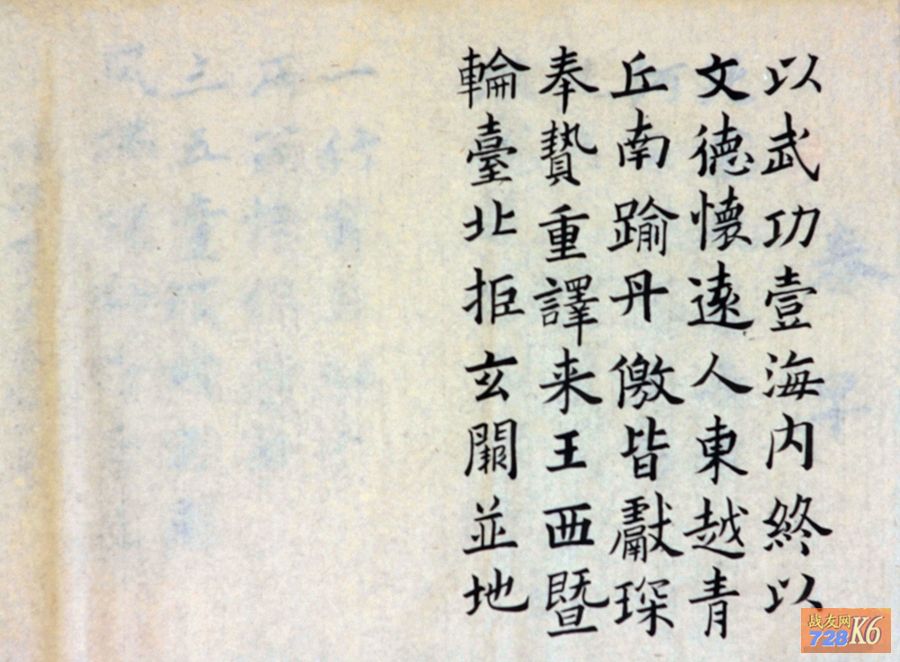 以武功壹海内終以
文德懷遠人東越青
丘南踰丹徼皆獻琛
奉贄重譯来王西暨
輪臺北拒玄闕並地
战友网
728K6